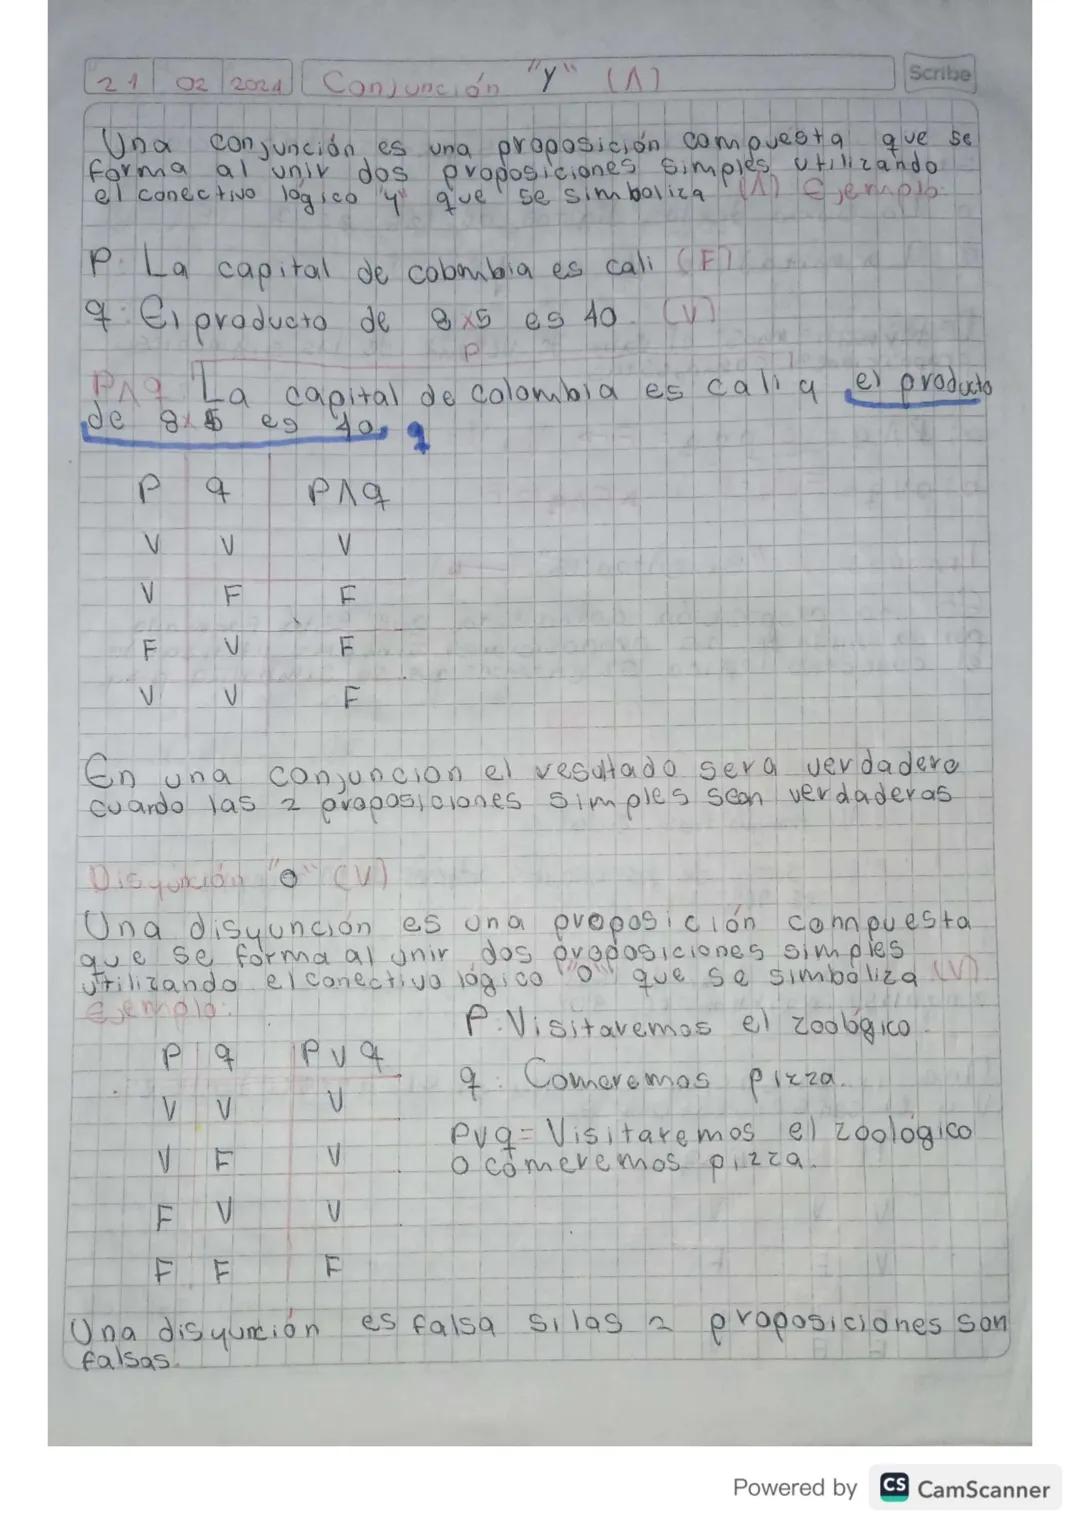 21 02 2021 Conjunción "y" (Λ) Scribe
Una conjunción es una proposición compuesta que se
forma al unir dos proposiciones simples utilizando
el conectivo lógico "y" que se simboliza (Λ) Ejemplo:
P: La capital de colombia es cali (F)
q: El producto de 8x5 es 40. (V)
P
PΛq La capital de colombia es cali y el producto
de 8x5 es 40. q
P q PΛq
V V V
V F F
F V F
V V F
En una conjuncion el resultado sera verdadero
cuando las 2 proposiciones simples sean verdaderas
Disyunción "o" (V)
Una disyunción es una proposición compuesta
que se forma al unir dos proposiciones simples
utilizando el conectivo lógico "o" que se simboliza (V)
Ejemplo:
P: Visitaremos el zoológico.
q: Comeremos pizza.
PVq = Visitaremos el zoológico
o comeremos pizza.
P q PVq
V V V
V F V
F V V
F F F
Una disyunción es falsa si las 2 proposiciones son
falsas.
Powered by CS CamScanner